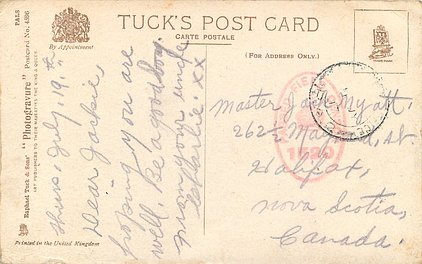 TUCK'S POST CARD
CARTE POSTALE
By Appointment
(FOR ADDRESS ONLY.)
PASS
Raphael Tuck & Sons' "Photogravure" Postcard No. 4486
ART PUBLISHERS TO THEIR MAJESTIES THE KING & QUEEN
Printed in the United Kingdom
Thurs. July. 19.th
Dear Jackie,
hoping you are
well. Be a good boy.
from your uncle
Charlie. xx
Master Jack Myatt.
262 St.
Halifax,
Nova Scotia,
Canada.